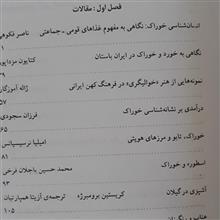 فصل اول: مقالات
انسان‌شناسی خوراک: نگاهی به مفهوم غذاهای قومی ـ جماعتی ناصر فکوهی
نگاهی به خورد و خوراک در ایران باستان کتایون مزداپور
۳۹
نمونه‌هایی از هنر «خوالیگری» در فرهنگ کهن ایرانی ژاله آموزگار
۵۷
درآمدی بر نشانه‌شناسی خوراک فرزان سجودی
۶۵
خوراک، تابو و مرزهای هویتی امیلیا نرسیسیانس
۸۱
اسطوره و خوراک محمد حسین باجلان فرخی
۹۳
آشپزی در گیلان کریستین برومبرژه ترجمه‌ی آزیتا همپارتیان
۱۰۵